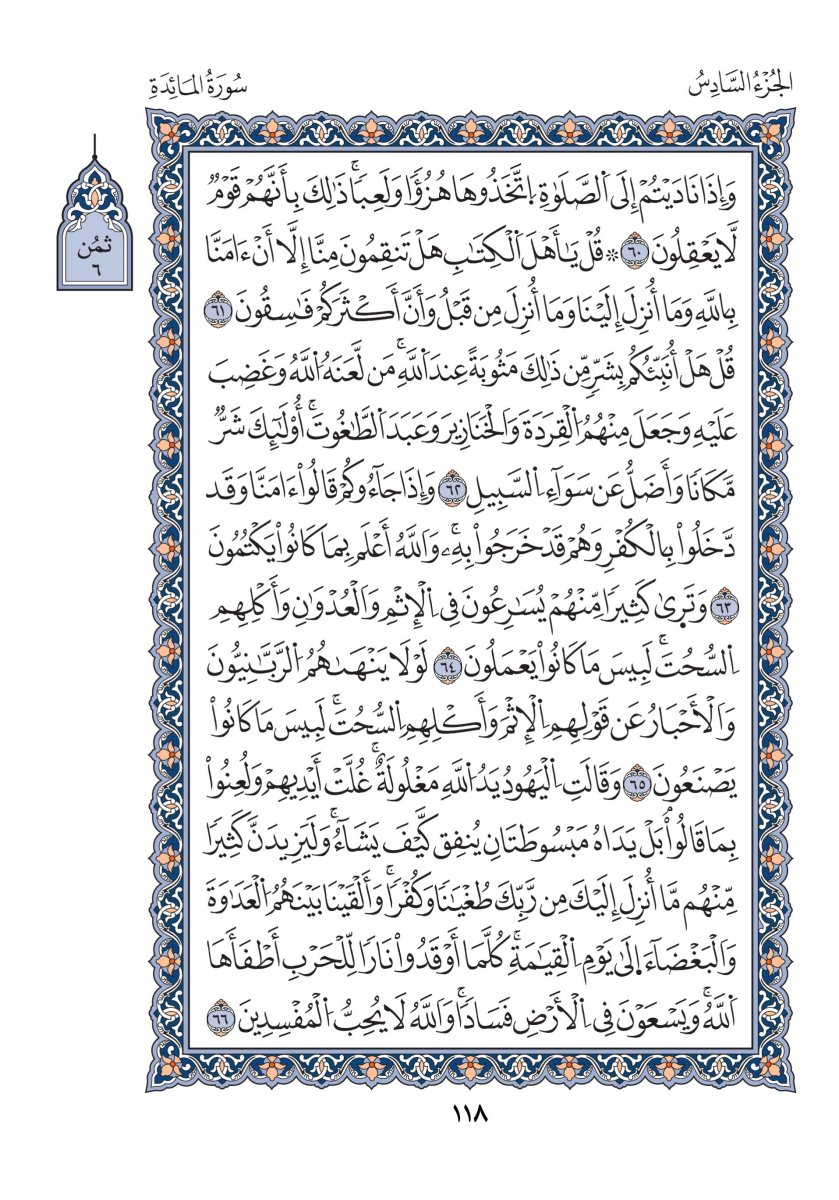 الجُزْءُ السَّادِسُ
سُورَةُ المَائِدَةِ
ثمُن
٦
وَإِذَا نَادَيْتُمْ إِلَى اَ۬لصَّلَوٰةِ اِ۪تَّخَذُوهَا هُزُؤاٗ وَلَعِباٗۖ ذَٰلِكَ بِأَنَّهُمْ قَوْمٞ
لَّا يَعْقِلُونَ ٦٠ ۞ قُلْ يَٰأَهْلَ اَ۬لْكِتَٰبِ هَلْ تَنقِمُونَ مِنَّا إِلَّا أَنْ ءَامَنَّا
بِاللَّهِ وَمَا أُنزِلَ إِلَيْنَا وَمَا أُنزِلَ مِن قَبْلُ وَأَنَّ أَكْثَرَكُمْ فَٰسِقُونَ ٦١
قُلْ هَلْ أُنَبِّئُكُم بِشَرّٖ مِّن ذَٰلِكَ مَثُوبَةً عِندَ اَ۬للَّهِۖ مَن لَّعَنَهُ اُ۬للَّهُ وَغَضِبَ
عَلَيْهِ وَجَعَلَ مِنْهُمُ اُ۬لْقِرَدَةَ وَالْخَنَازِيرَ وَعَبَدَ اَ۬لطَّٰغُوتَۖ أُوْلَٰئِكَ شَرّٞ
مَّكَاناٗ وَأَضَلُّ عَن سَوَآءِ اِ۬لسَّبِيلِ ٦٢ وَإِذَا جَآءُوكُمْ قَالُواْ ءَامَنَّا وَقَد
دَّخَلُواْ بِالْكُفْرِ وَهُمْ قَدْ خَرَجُواْ بِهِۦۖ وَاللَّهُ أَعْلَم بِمَا كَانُواْ يَكْتُمُونَ
٦٣ وَتَرٜىٰ كَثِيراٗ مِّنْهُمْ يُسَٰرِعُونَ فِي اِ۬لْإِثْمِ وَالْعُدْوَٰنِ وَأَكْلِهِمِ
اِ۬لسُّحُتَۖ لَبِيسَ مَا كَانُواْ يَعْمَلُونَ ٦٤ لَوْلَا يَنْهَىٰهُمُ اُ۬لرَّبَّٰنِيُّونَ
وَالْأَحْبَارُ عَن قَوْلِهِمِ اِ۬لْإِثْمَ وَأَكْلِهِمِ اِ۬لسُّحُتَۖ لَبِيسَ مَا كَانُواْ
يَصْنَعُونَ ٦٥ وَقَالَتِ اِ۬لْيَهُودُ يَدُ اُ۬للَّهِ مَغْلُولَةٌۖ غُلَّتْ أَيْدِيهِمْ وَلُعِنُواْ
بِمَا قَالُواْ بَلْ يَدَاهُ مَبْسُوطَتَانِ يُنفِق كَّيْفَ يَشَآءُۖ وَلَيَزِيدَنَّ كَثِيراٗ
مِّنْهُم مَّا أُنزِلَ إِلَيْكَ مِن رَّبِّكَ طُغْيَٰناٗ وَكُفْراٗۖ وَأَلْقَيْنَا بَيْنَهُمُ اُ۬لْعَدَٰوَةَ
وَالْبَغْضَآءَ اِ۪لَىٰ يَوْمِ اِ۬لْقِيَٰمَةِۖ كُلَّمَا أَوْقَدُواْ نَاراٗ لِّلْحَرْبِ أَطْفَأَهَا
اَ۬للَّهُۖ وَيَسْعَوْنَ فِي اِ۬لْأَرْضِ فَسَاداٗۖ وَاللَّهُ لَا يُحِبُّ اُ۬لْمُفْسِدِينَ ٦٦
١١٨